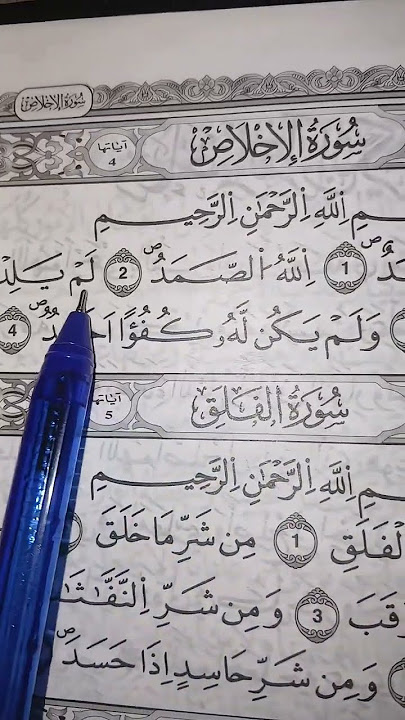 سُورَةُ الْإِخْلَاصِ
سُورَةُ الْإِخْلَاصِ
اٰيَاتُهَا
4
اللّٰهِ الرَّحْمٰنِ الرَّحِيمِ
1 اَللّٰهُ الصَّمَدُ ص 2 لَمْ يَلِدْ
وَلَمْ يَكُنْ لَهُ كُفُؤًا ص 4
سُورَةُ الْفَلَقِ
اٰيَاتُهَا
5
اللّٰهِ الرَّحْمٰنِ الرَّحِيمِ
الْفَلَقِ 1 مِن شَرِّ مَا خَلَقَ
وَقَبَ 3 وَ مِن شَرِّ النَّفَّاثَا
وَ مِن شَرِّ حَاسِدٍ اِذَا حَسَدَ ص